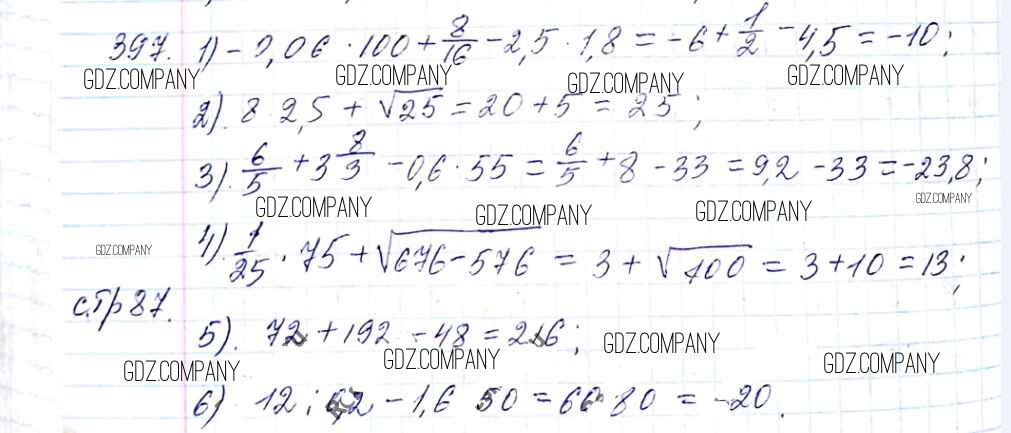 397. 1) -0,06 · 100 + 8/16 - 2,5 · 1,8 = -6 + 1/2 - 4,5 = -10;
GDZ.COMPANY GDZ.COMPANY GDZ.COMPANY GDZ.COMPANY
2). 8 2,5 + √25 = 20 + 5 = 25;
3). 6/5 + 3 8/3 - 0,6 · 55 = 6/5 + 8 - 33 = 9,2 - 33 = -23,8;
GDZ.COMPANY GDZ.COMPANY GDZ.COMPANY GDZ.COMPANY
4). 1/25 · 75 + √676-576 = 3 + √100 = 3 + 10 = 13;
GDZ.COMPANY
стр 87.
5). 72 + 192 - 48 = 216;
GDZ.COMPANY GDZ.COMPANY GDZ.COMPANY GDZ.COMPANY
6) 12 : - 1,6 50 = 60 - 80 = -20.